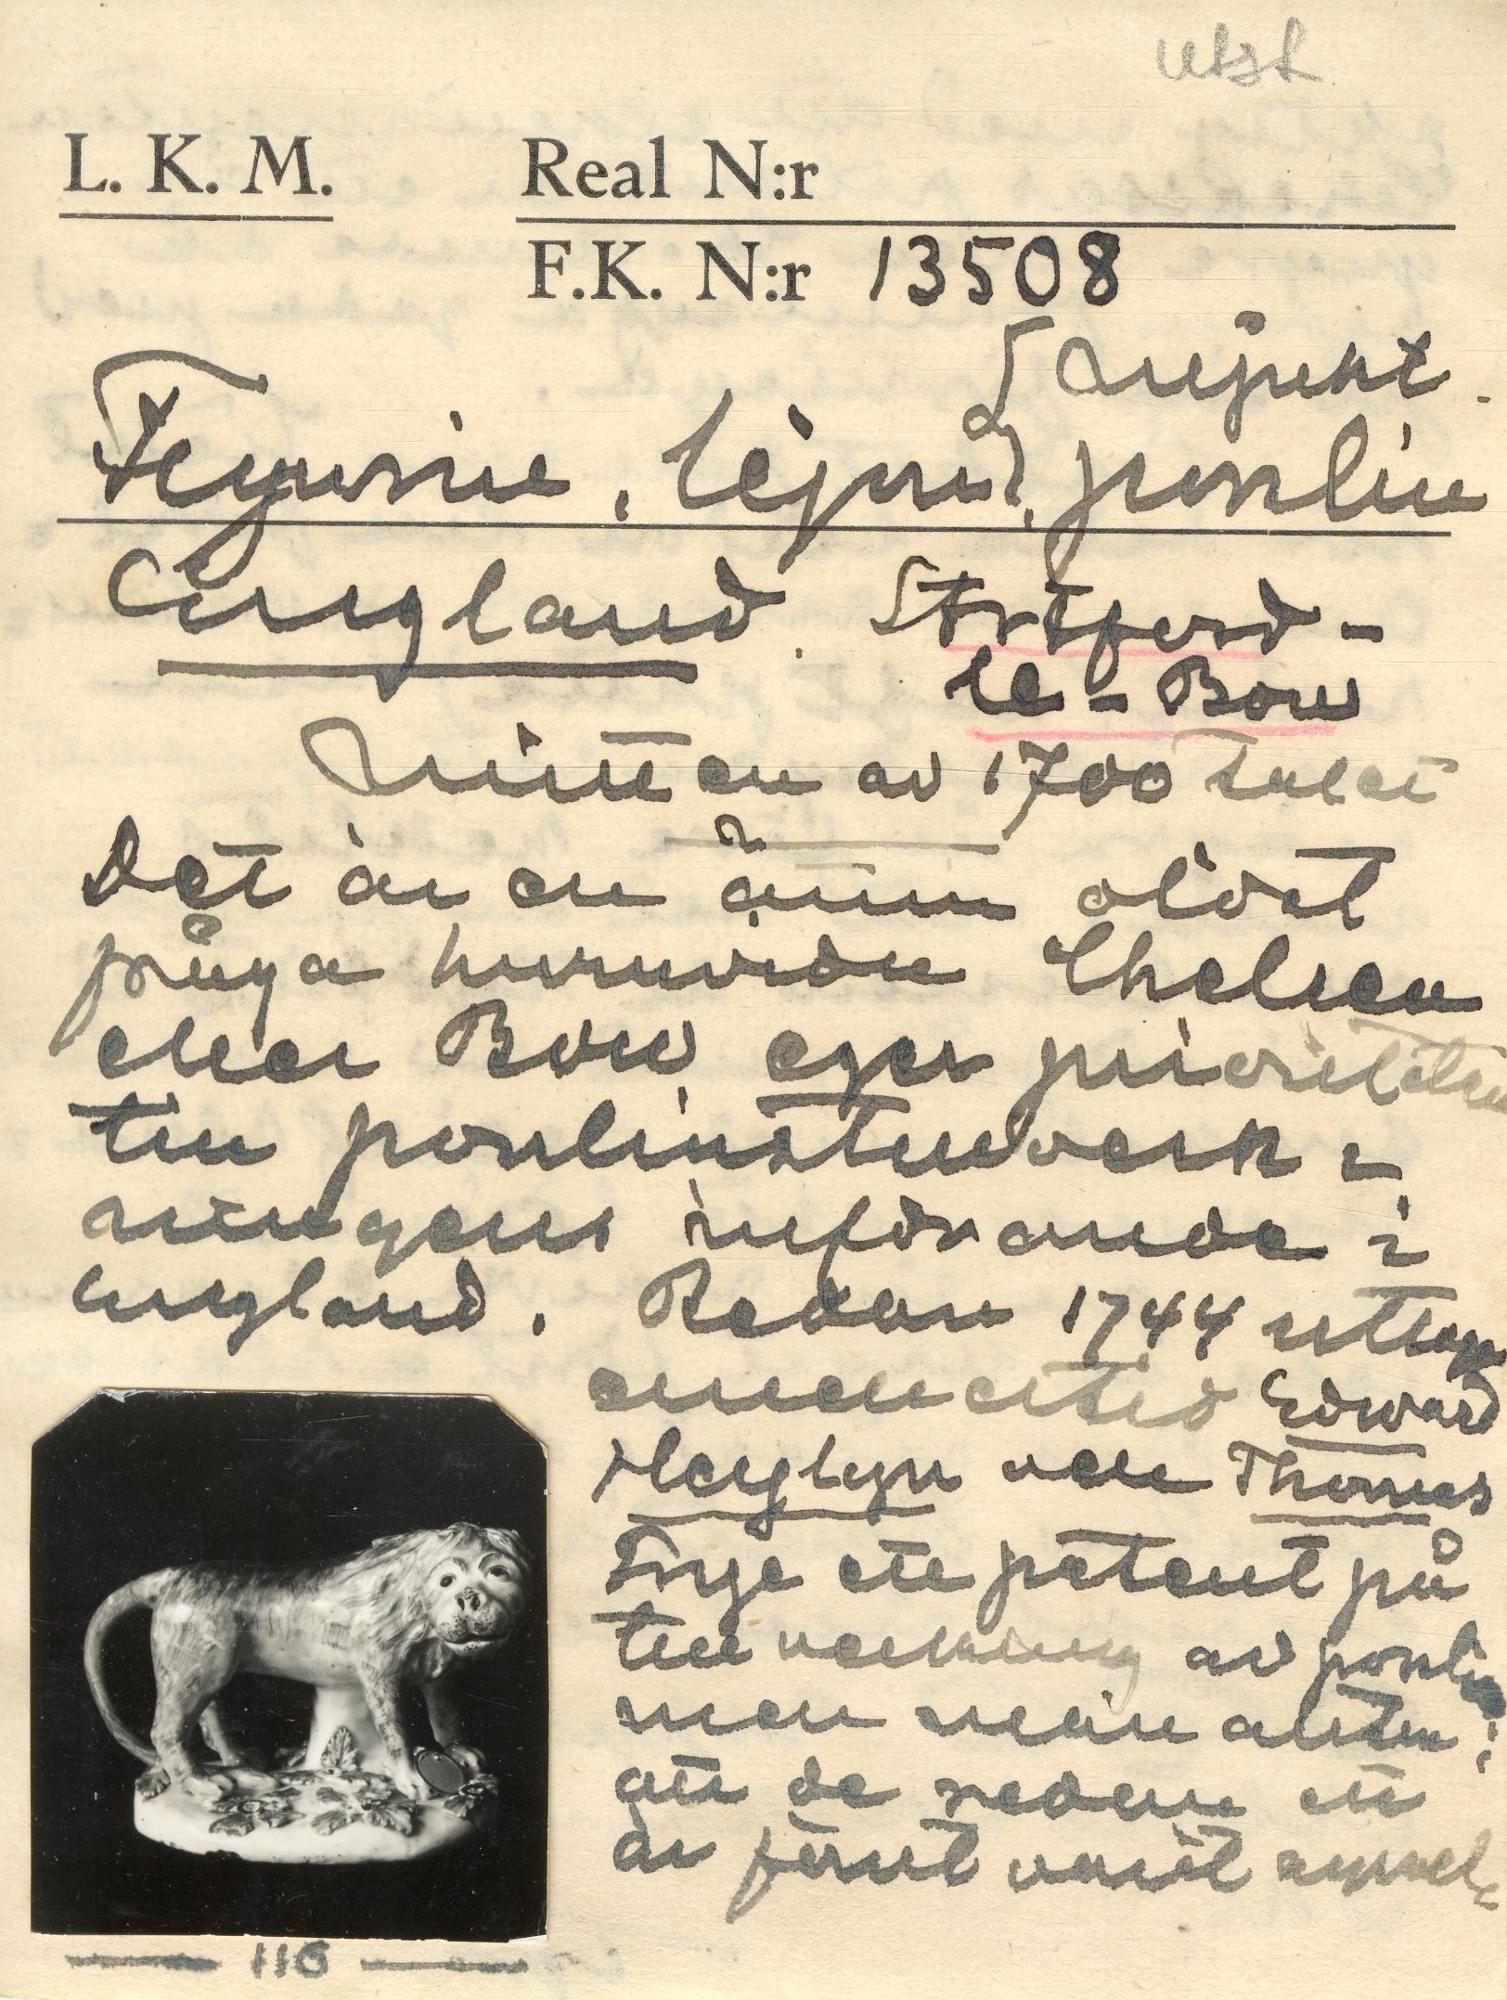 utst
L. K. M. Real N:r
F.K. N:r 13508
Figurin, lejon, porslin
England. Stratford-
le-Bow
Mitten av 1700 talet
Det är en ännu olöst
fråga huruvida Chelsea
eller Bow eger prioriteten
till porslinstillverk-
ningens införande i
England. Redan 1744 uttogo
emellertid Edward
Heylyn och Thomas
Frye ett patent på
tillverkning av porslin
men man antar
att de redan ett
år förut varit
116